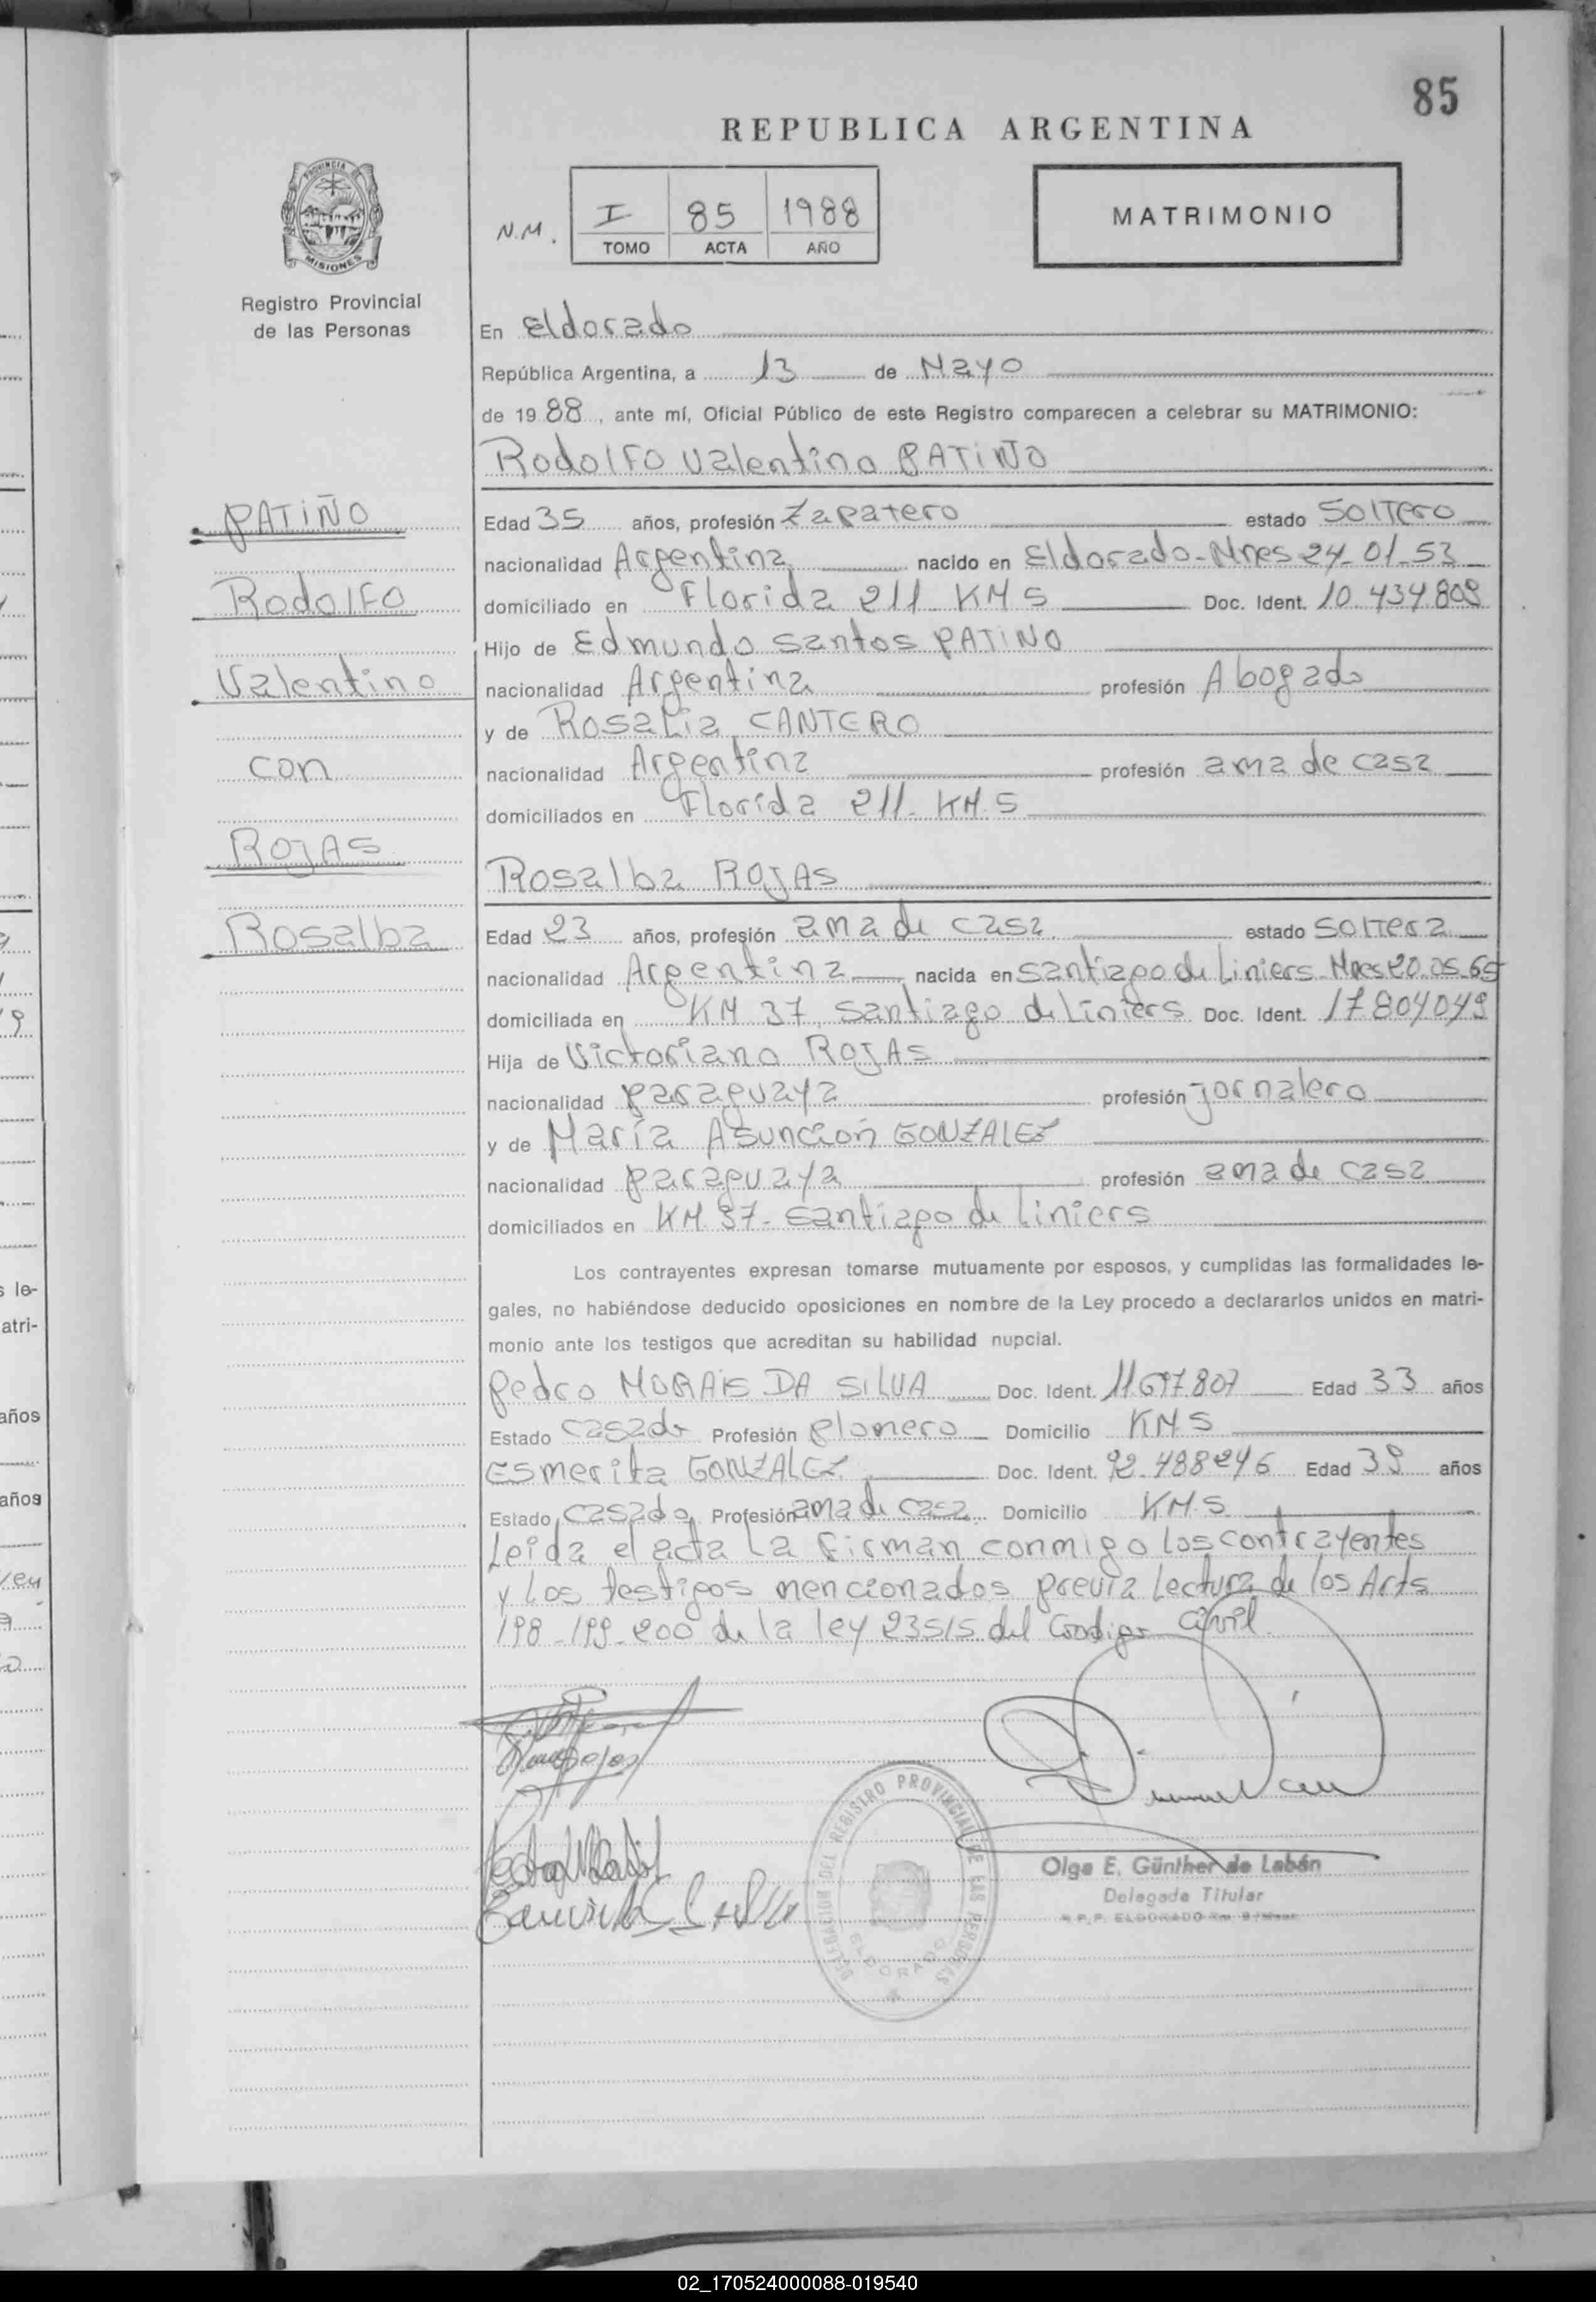 85
REPUBLICA ARGENTINA
PROVINCIA DE
MISIONES
Registro Provincial
de las Personas
N.M. I 85 1988
TOMO ACTA AÑO
MATRIMONIO
En Eldorado
República Argentina, a 13 de Mayo
de 1988, ante mí, Oficial Público de este Registro comparecen a celebrar su MATRIMONIO:
Rodolfo Valentino PATIÑO
PATIÑO
Rodolfo
Valentino
con
ROJAS
Rosalba
Edad 35 años, profesión Zapatero estado Soltero
nacionalidad Argentina nacido en Eldorado-Mnes 24-01-53
domiciliado en Florida 211 KM 5 Doc. Ident. 10.434.809
Hijo de Edmundo Santos PATIÑO
nacionalidad Argentina profesión Abogado
y de Rosalia CANTERO
nacionalidad Argentina profesión ama de casa
domiciliados en Florida 211. KM. 5
Rosalba ROJAS
Edad 23 años, profesión ama de casa estado Soltera
nacionalidad Argentina nacida en Santiago de Liniers-Mnes 20.05.65
domiciliada en KM 37. Santiago de Liniers Doc. Ident. 17804049
Hija de Victoriano ROJAS
nacionalidad paraguaya profesión jornalero
y de María Asunción GONZALEZ
nacionalidad paraguaya profesión ama de casa
domiciliados en KM. 37- Santiago de Liniers
Los contrayentes expresan tomarse mutuamente por esposos, y cumplidas las formalidades le-
gales, no habiéndose deducido oposiciones en nombre de la Ley procedo a declararlos unidos en matri-
monio ante los testigos que acreditan su habilidad nupcial.
Pedro MORAIS DA SILVA Doc. Ident. 11697807 Edad 33 años
Estado casado Profesión plomero Domicilio KM 5
Esmerita GONZALEZ Doc. Ident. 92.488246 Edad 39 años
Estado casada Profesión ama de casa Domicilio KM. 5
Leida el acta la firman conmigo los contrayentes
y los testigos mencionados previa lectura de los Arts
198-199-200 de la ley 23515 del Codigo civil
DELEGACION DEL REGISTRO PROVINCIAL DE LAS PERSONAS
ELDORADO
Olga E. Günther de Labán
Delegada Titular
02_170524000088-019540